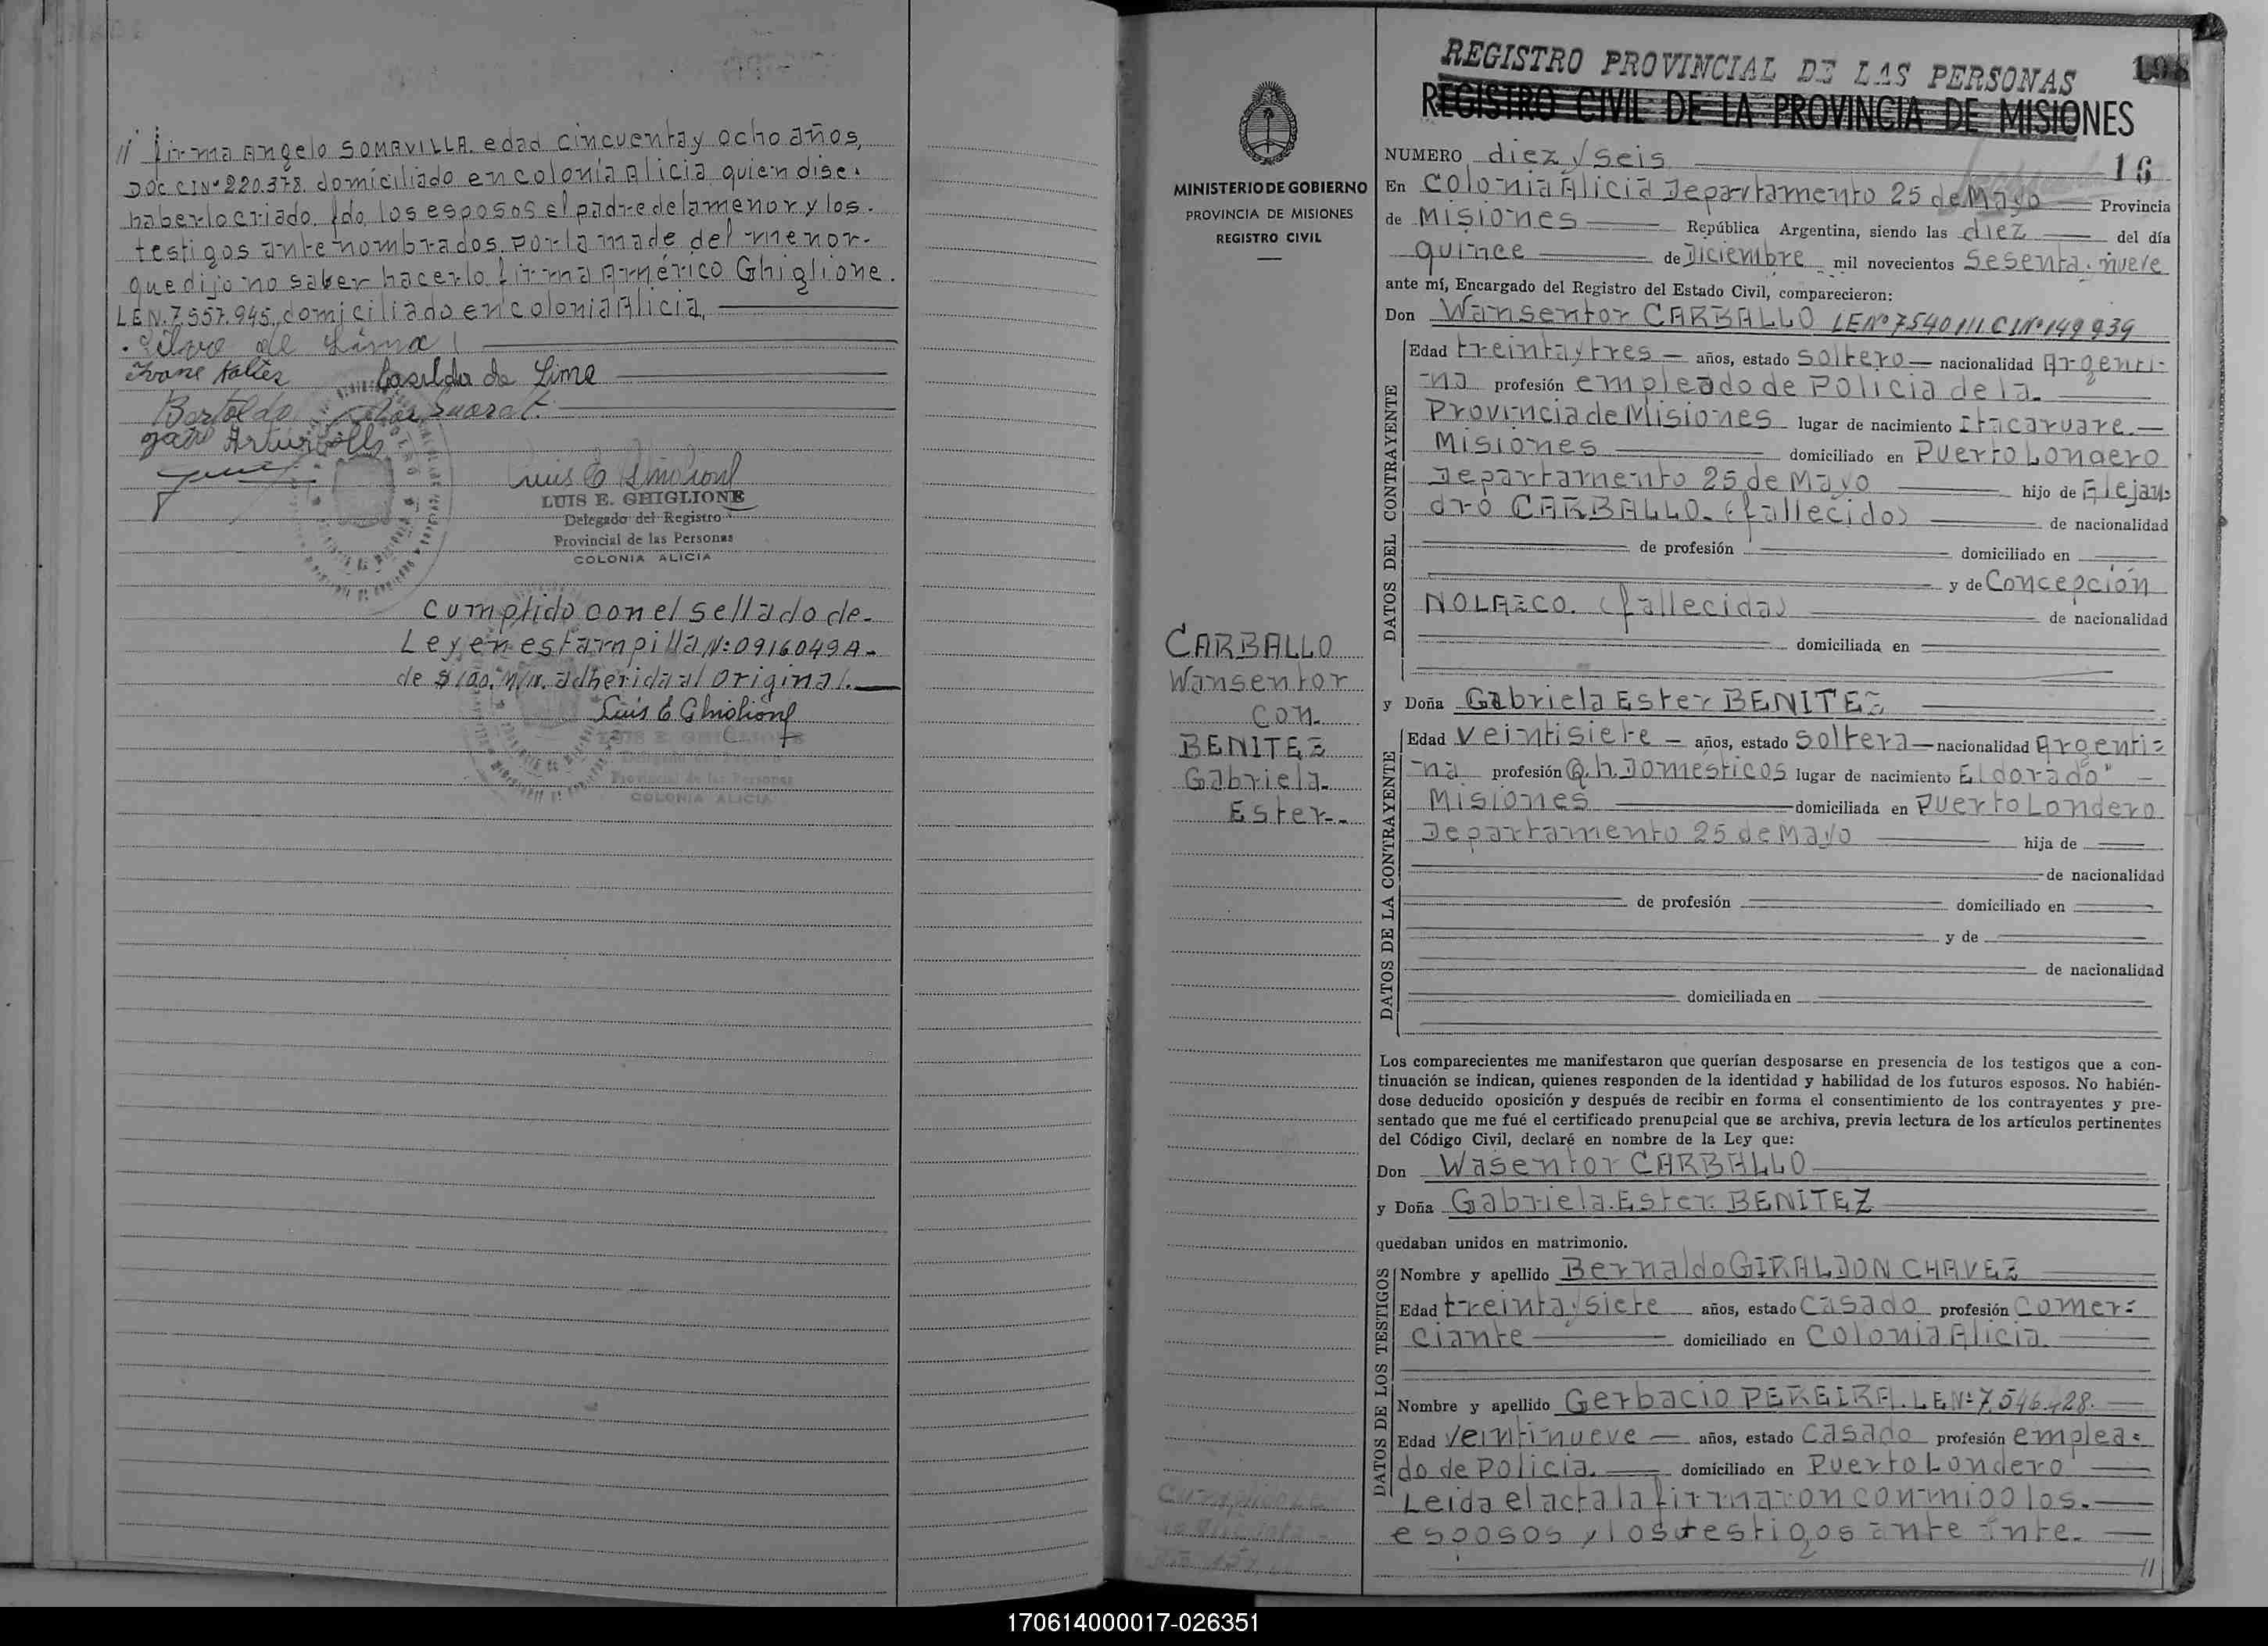 // firma Angelo SOMAVILLA. edad cincuenta y ocho años,
DOC CIN° 220.378. domiciliado en colonia Alicia quien dise.
haberlo criado. fdo. los esposos el padre de la menor y los.
testigos ante nombrados. por la made del menor.
que dijo no saber hacerlo firma Américo Ghiglione.
LEN. 7.557.945. domiciliado en colonia Alicia.
de Lima
Casilda de Lima
Bertoldo
Luis E Ghiglione
LUIS E. GHIGLIONE
Delegado del Registro
Provincial de las Personas
COLONIA ALICIA
Cumplido con el sellado de-
Ley en estampilla N: 0916049A-
de $ 100. M/N. adherida al original.
Luis E Ghiglione
LUIS E. GHIGLIONE
Delegado del Registro
Provincial de las Personas
COLONIA ALICIA
MINISTERIO DE GOBIERNO
PROVINCIA DE MISIONES
REGISTRO CIVIL
CARBALLO
Wansentor
con.
BENITEZ
Gabriela.
Ester--
REGISTRO PROVINCIAL DE LAS PERSONAS
198
REGISTRO CIVIL DE LA PROVINCIA DE MISIONES
NUMERO diez y seis 16
En Colonia Alicia Departamento 25 de Mayo Provincia
de Misiones República Argentina, siendo las diez del día
quince de Diciembre mil novecientos sesenta. nueve
ante mí, Encargado del Registro del Estado Civil, comparecieron:
Don Wansentor CARBALLO LEN° 7540111 CIN° 149939
DATOS DEL CONTRAYENTE
Edad treinta y tres años, estado soltero nacionalidad Argenti-
na profesión empleado de Policia de la.
Provincia de Misiones lugar de nacimiento Itacaruare.
Misiones domiciliado en Puerto Londero
Departamento 25 de Mayo hijo de Alejan-
dro CARBALLO. (fallecido) de nacionalidad
de profesión domiciliado en
y de Concepción
NOLAZCO. (fallecida) de nacionalidad
domiciliada en
y Doña Gabriela Ester BENITEZ
DATOS DE LA CONTRAYENTE
Edad veintisiete años, estado soltera nacionalidad Argenti-
na profesión Q.h. Domesticos lugar de nacimiento Eldorado"
Misiones domiciliada en Puerto Londero
Departamento 25 de Mayo hija de
de nacionalidad
de profesión domiciliado en
y de
de nacionalidad
domiciliada en
Los comparecientes me manifestaron que querían desposarse en presencia de los testigos que a con-
tinuación se indican, quienes responden de la identidad y habilidad de los futuros esposos. No habién-
dose deducido oposición y después de recibir en forma el consentimiento de los contrayentes y pre-
sentado que me fué el certificado prenupcial que se archiva, previa lectura de los artículos pertinentes
del Código Civil, declaré en nombre de la Ley que:
Don Wasentor CARBALLO
y Doña Gabriela. Ester. BENITEZ
quedaban unidos en matrimonio.
DATOS DE LOS TESTIGOS
Nombre y apellido Bernaldo GIRALDON CHAVEZ
Edad treinta y siete años, estado casado profesión comer-
ciante domiciliado en Colonia Alicia.
Nombre y apellido Gerbacio PEREIRA. LEN: 7.546.428.
Edad veintinueve años, estado casado profesión emplea-
do de Policia. domiciliado en Puerto Londero
Leida el acta la firmaron conmigo los.
esposos y los testigos ante ante.
//
170614000017-026351